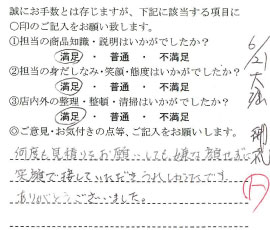 誠にお手数とは存じますが、下記に該当する項目に
○印のご記入をお願い致します。
①担当の商品知識・説明はいかがでしたか？
満足 ・ 普通 ・ 不満足
②担当の身だしなみ・笑顔・態度はいかがでしたか？
満足 ・ 普通 ・ 不満足
③店内外の整理・整頓・清掃はいかがでしたか？
満足 ・ 普通 ・ 不満足
◎ご意見・お気付きの点等、ご記入をお願いします。
何度も見積りをお願いしても嫌な顔せずに
笑顔で接していただきうれしかったです
ありがとうございました。
6/21